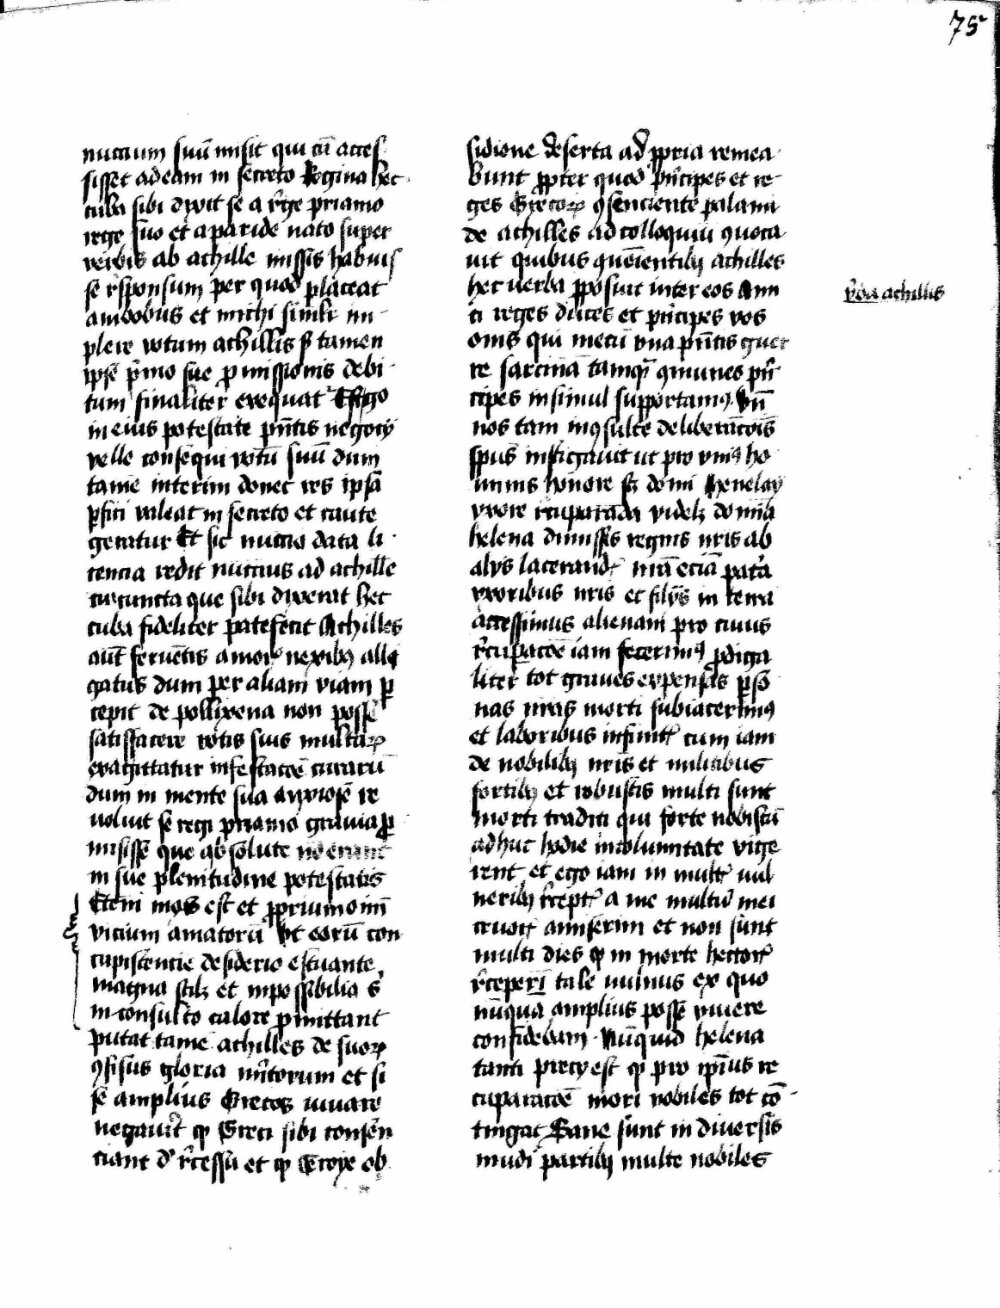 75
nuccium suū misit qui cū acces
sisset ad eam in secreto Regina hec
cuba sibi dixit se a rege priamo
rege suo et a paride nato super
verbis ab achille missis habuis
se rsponsum per quod placeat
ambobus et michi simlr im
plere votum achillis si tamen
ipse pmo sue pmissionis debi
tum finaliter exequat Et ego
in eius potestate pntis negocij
velle consequi votū suū dum
tamē interim donec res ipsa
pfici valeat in secreto et caute
geratur Et sic nuccio data li
cencia redit nuccius ad achille
cui cuncta que sibi dixerat hec
cuba fideliter patefecit Achilles
aūt feruētis amoris nexibꝫ alli
gatus dum per aliam viam p
cepit de pollixena non posse
satisfacere votis suis multaꝝ
exagittatur infestacōe curarū
dum in mente sua anxiose re
voluit se regi priamo gravia p
misisse que absolute nō erant
in sue plenitudine potestatis
Eteni mos est et ppriumomī
vicium amatorū ut eorū con
cupiscencie desiderio estuante
magna scilꝫ et inpossibilia s
inconsulto calore pmittant
putat tamē achilles de suoꝝ
ꝯfisus gloria mitorum et si
se amplius Grecos iuvare
negavit ꝙ Greci sibi consen
ciant d rcessu et ꝙ Troye ob
sidione deserta ad ppria remea
bunt ppter quod pncipes et re
ges Grecoꝝ ꝯsenciente palami
de achilles ad colloquiū ꝯvoca
vit quibus ꝯveientibꝫ achilles
hec verba pposuit inter eos Ami
ci reges duces et pncipes vos
oms qui mecū una pntis guer
re sarcinā tamqꝫ ꝯmunes pn
cipes insimul supportamꝯ Un
nos tam incꝯsulte deliberacōis
spūs instigavit ut pro uniꝯ ho
minis honore sc domi Menelay
uxore rcuperada videlꝫ domina
helena dimissis regnis nris ab
alijs lacerand niā eciā patia
uxoribus nris et filijs in terra
accessimus alienam pro cuius
rcupacōe iam fecerimꝯ pdiga
liter tot graves expensas pso
nas nras morti subiacerimꝯ
et laboribus infinit cum iam
de nobilibꝫ nris et militibus
fortibꝫ et robustis multi sunt
morti traditi qui forte nobiscū
ad huc hodie incolumitate vige
rent et ego iam in mult vul
neribꝫ rcept a me multū mei
cruoris amiserim et non sunt
multi dies ꝙ in morte hectoris
rceperī tale vulnus ex quo
nūquā amplius posse vivere
confidebam Nūquid helena
tanti precij est ꝙ pro ipius re
cuparacōe mori nobiles tot cō
tingat Sane sunt in diversis
mudi partibꝫ multe nobiles
vba achillis